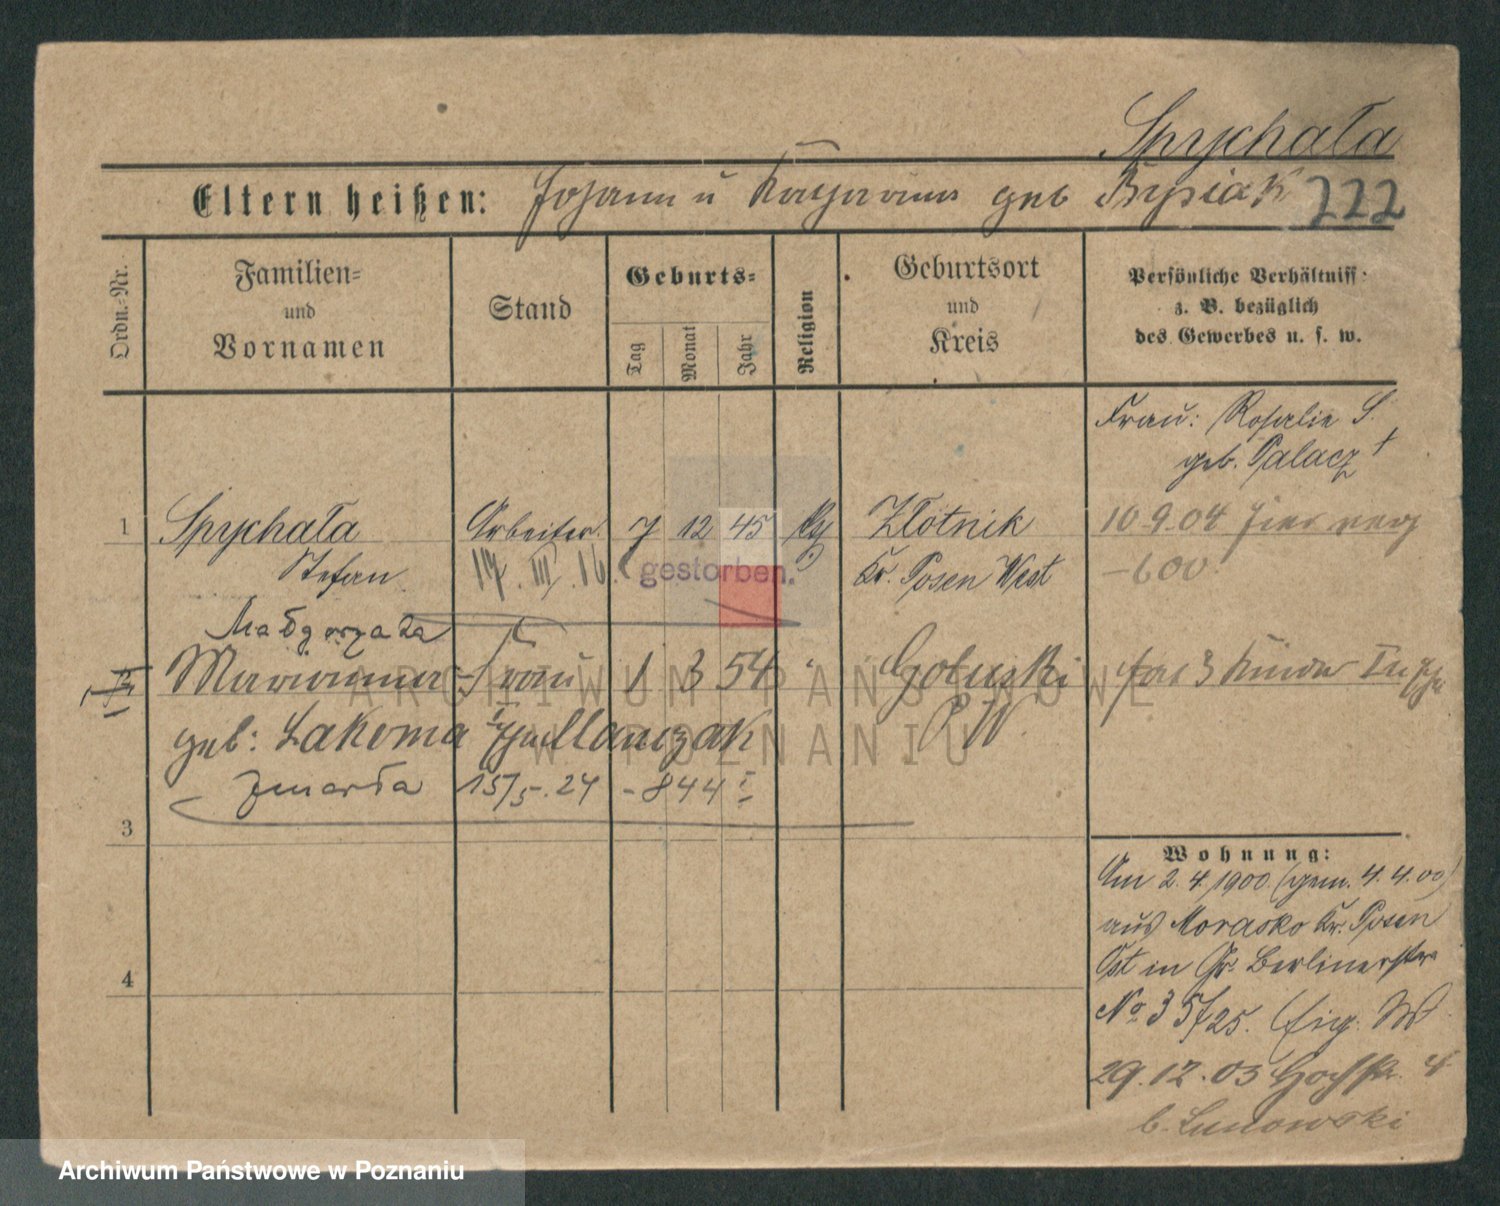 Spychała
Eltern heißen: Johann u Katharina geb Brysiak 222
Ordn.-Nr.
Familien-
und
Vornamen
Stand
Geburts-
Tag
Monat
Jahr
Religion
Geburtsort
und
Kreis
Persönliche Verhältniss-
z. B. bezüglich
des Gewerbes u. s. w.
Frau: Rosalie S.
geb. Palacz †
1 Spychała Arbeiter 7 12 45 Złotnik 10.9.04
Stefan 17. III. 16. gestorben. Kr. Posen West -600
Małgorzata
Marianna Frau 1 3 54 " Gołuski 3 Kinder
geb: Łakoma Marczak P W.
zmarła 15/5.24 - 844 I
3
4
Wohnung:
Am 2.4.1900 (gem. 4.4.00)
aus Morasko Kr. Posen
Ost in Gr. Berlinerstr
No 35/25. Eig. W
29.12.03
b. Lunowski
ARCHIWUM PAŃSTWOWE
W POZNANIU
Archiwum Państwowe w Poznaniu